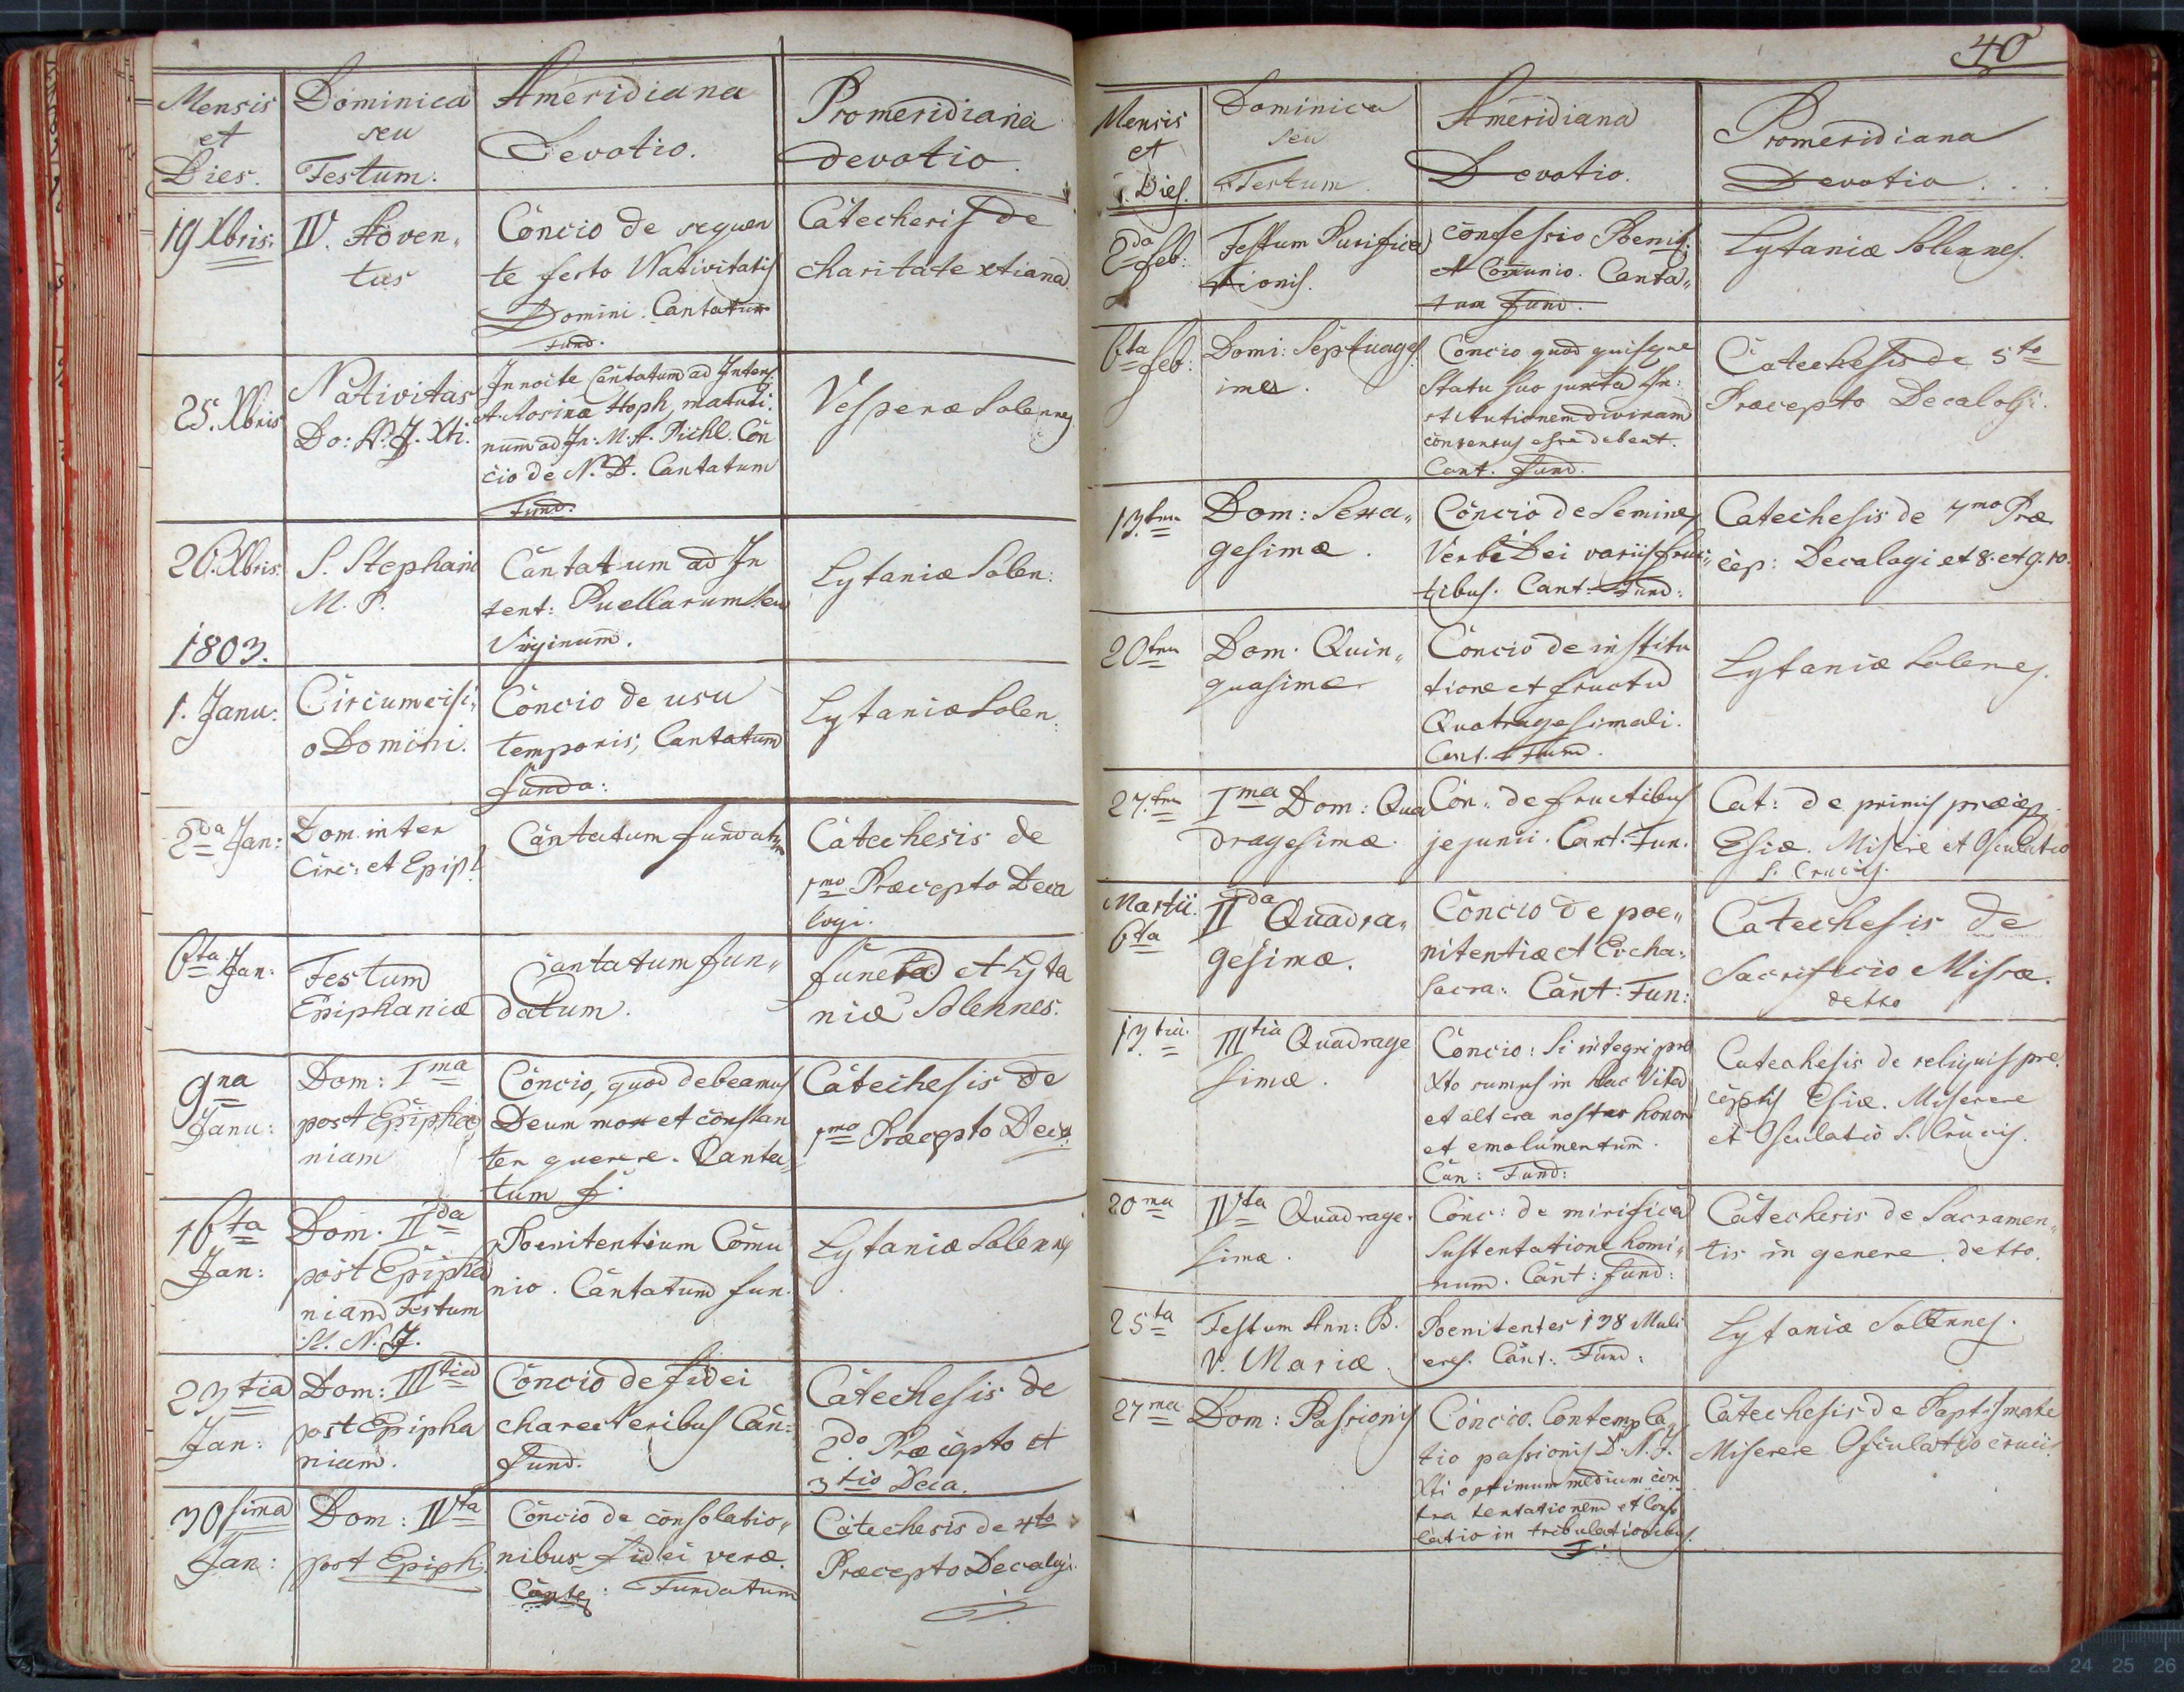 Mensis
et
Dies.
Dominica
seu
Festum:
Ameridiana
Devotio.
Promeridiana
devotio.
19 Xbris.
IV. Adven„
tus
Concio de sequen
te festo Nativitatis
Domini. Cantatum
Fund.
Catechesis de
charitate xtiana.
25. Xbris
Nativitas
Do: N. J. Xti.
In nocte Cantatum ad Intens
A. Rosinæ Hoph, matuti:
num ad In: M. A. Pichl. Con
cio de N. D. Cantatum
Fund.
Vesperæ Solennes
26. Xbris.
S. Stephani
M. P.
Cantatum ad In
tent: Puellarum seu
Virginum.
Lytaniæ Solen:
1803.
1. Janu:
Circumcisi„
o Domini.
Concio de usu
temporis, Cantatum
funda:
Lytaniæ Solen:
2da Jan:
Dom. inter
Circ: et Epiph
Cantatum fundatum
Catechesis de
1mo Præcepto Deca
logi.
6ta Jan:
Festum
Epiphaniæ
Cantatum fun„
datum.
functa et Lyta
niæ Solennes.
9na
Janu:
Dom: Ima
post Epipha
niam
Concio, quod debeamus
Deum mox et constan
ter querere. Canta„
tum f.
Catechesis de
1mo Præcepto Deca.
16ta
Jan:
Dom. IIda
post Epipha
niam Festum
SS. N. J.
Poenitentium Comu
nio. Cantatum fun.
Lytaniæ Solennes
23tia
Jan:
Dom: IIItia
post Epipha
niam.
Concio de fidei
charecteribus Can:
fund.
Catechesis de
2do Præcepto et
3tio Deca.
30sima
Jan:
Dom: IVta
post Epiph:
Concio de consolatio„
nibus fidei veræ.
Cante: Fundatum
Catechesis de 4to
Præcepto Decalogi.
40
Mensis
et
Dies.
Dominica
seu
Festum.
Ameridiana
Devotio.
Promeridiana
Devotio...
2da Feb:
Festum Purifica
tionis.
confessio Poenit:
et Comunio. Canta„
tum Fund.
Lytaniæ Solennes.
6ta Feb:
Domi: Septuages
imæ.
Concio quod quisque
Statu suo juxta In:
stitutionem divinam
contentus esse debeat.
Cant. fund.
Catechesis de 5to
Præcepto Decalogi.
13. tia
Dom: Sexa„
gesimæ.
Concio de Semine
Verbi Dei variis fruc:
tibus. Cant. Fund:
Catechesis de 7mo Præ
cep: Decalogi et 8. et 9. 10.
20
Dom. Quin„
quasimæ
Concio de institu
tione et fructu
Quatragesimali.
Cant. Fund.
Lytaniæ Solenes.
27.
Ima Dom: Qua
dragesimæ.
Con„ de fructibus
jejunii. Cant: Fun.
Cat: de primis præcep
Esiæ. Misere et Osculatio
S. Crucis.
Martii.
6ta
IIda Quadra„
gesimæ.
Concio de poe„
nitentiæ et Eucha:
Sacra: Cant: Fun:
Catechesis de
Sacrificio Missæ.
detto
13tia.
IIItia Quadrage
simæ.
Concio: Si integri pro
Xto sumus in hac Vita
et altera noster honor
et emolumentum.
Can: Fund:
Catechesis de reliquis præ.
ceptis Esiæ. Miserere
et Osculatio S. Crucis.
20ma
IVta Quadrage.
simæ.
Conc: de mirifica
Sustentatione homi„
num. Cant: fund:
Catechesis de Sacramen„
tis in genere. detto.
25ta
Festum Ann: B.
V. Mariæ.
Poenitentes 138 Muli
eres. Cant: Fund:
Lytaniæ Solennes.
27ma
Dom: Passionis
Concio. Contempla
tio passionis D. N. J.
Xti optimum medium con
tra tentationem et Conso
latio in tribulationibus.
F.
Catechesis de Baptismate
Miserere Osculatio crucis